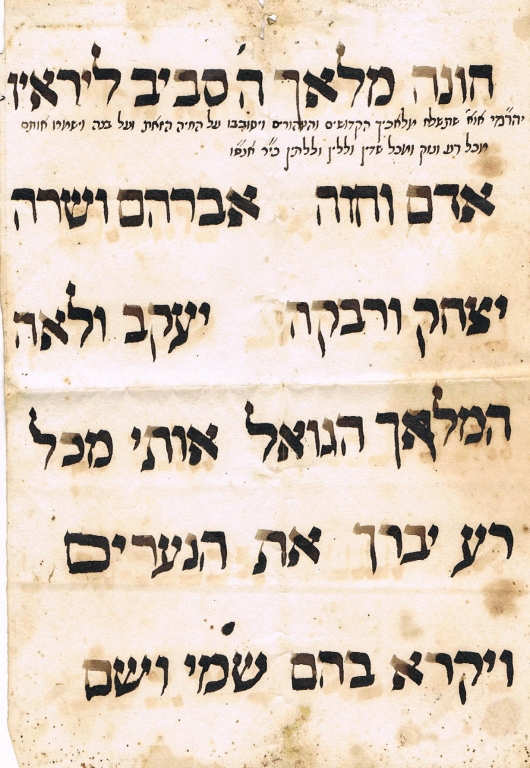 חונה מלאך ה' סביב ליראיו
יהר"מי או"א שתשלח מלאכיך הקדושים והטהורים ויסובבו על החיה הזאת ועל בנה וישמרו אותם
מכל רע ונזק ומכל שדין וללין וללתין כי"ר אנס"ו
אדם וחוה אברהם ושרה
יצחק ורבקה יעקב ולאה
המלאך הגואל אותי מכל
רע יברך את הנערים
ויקרא בהם שמי ושם